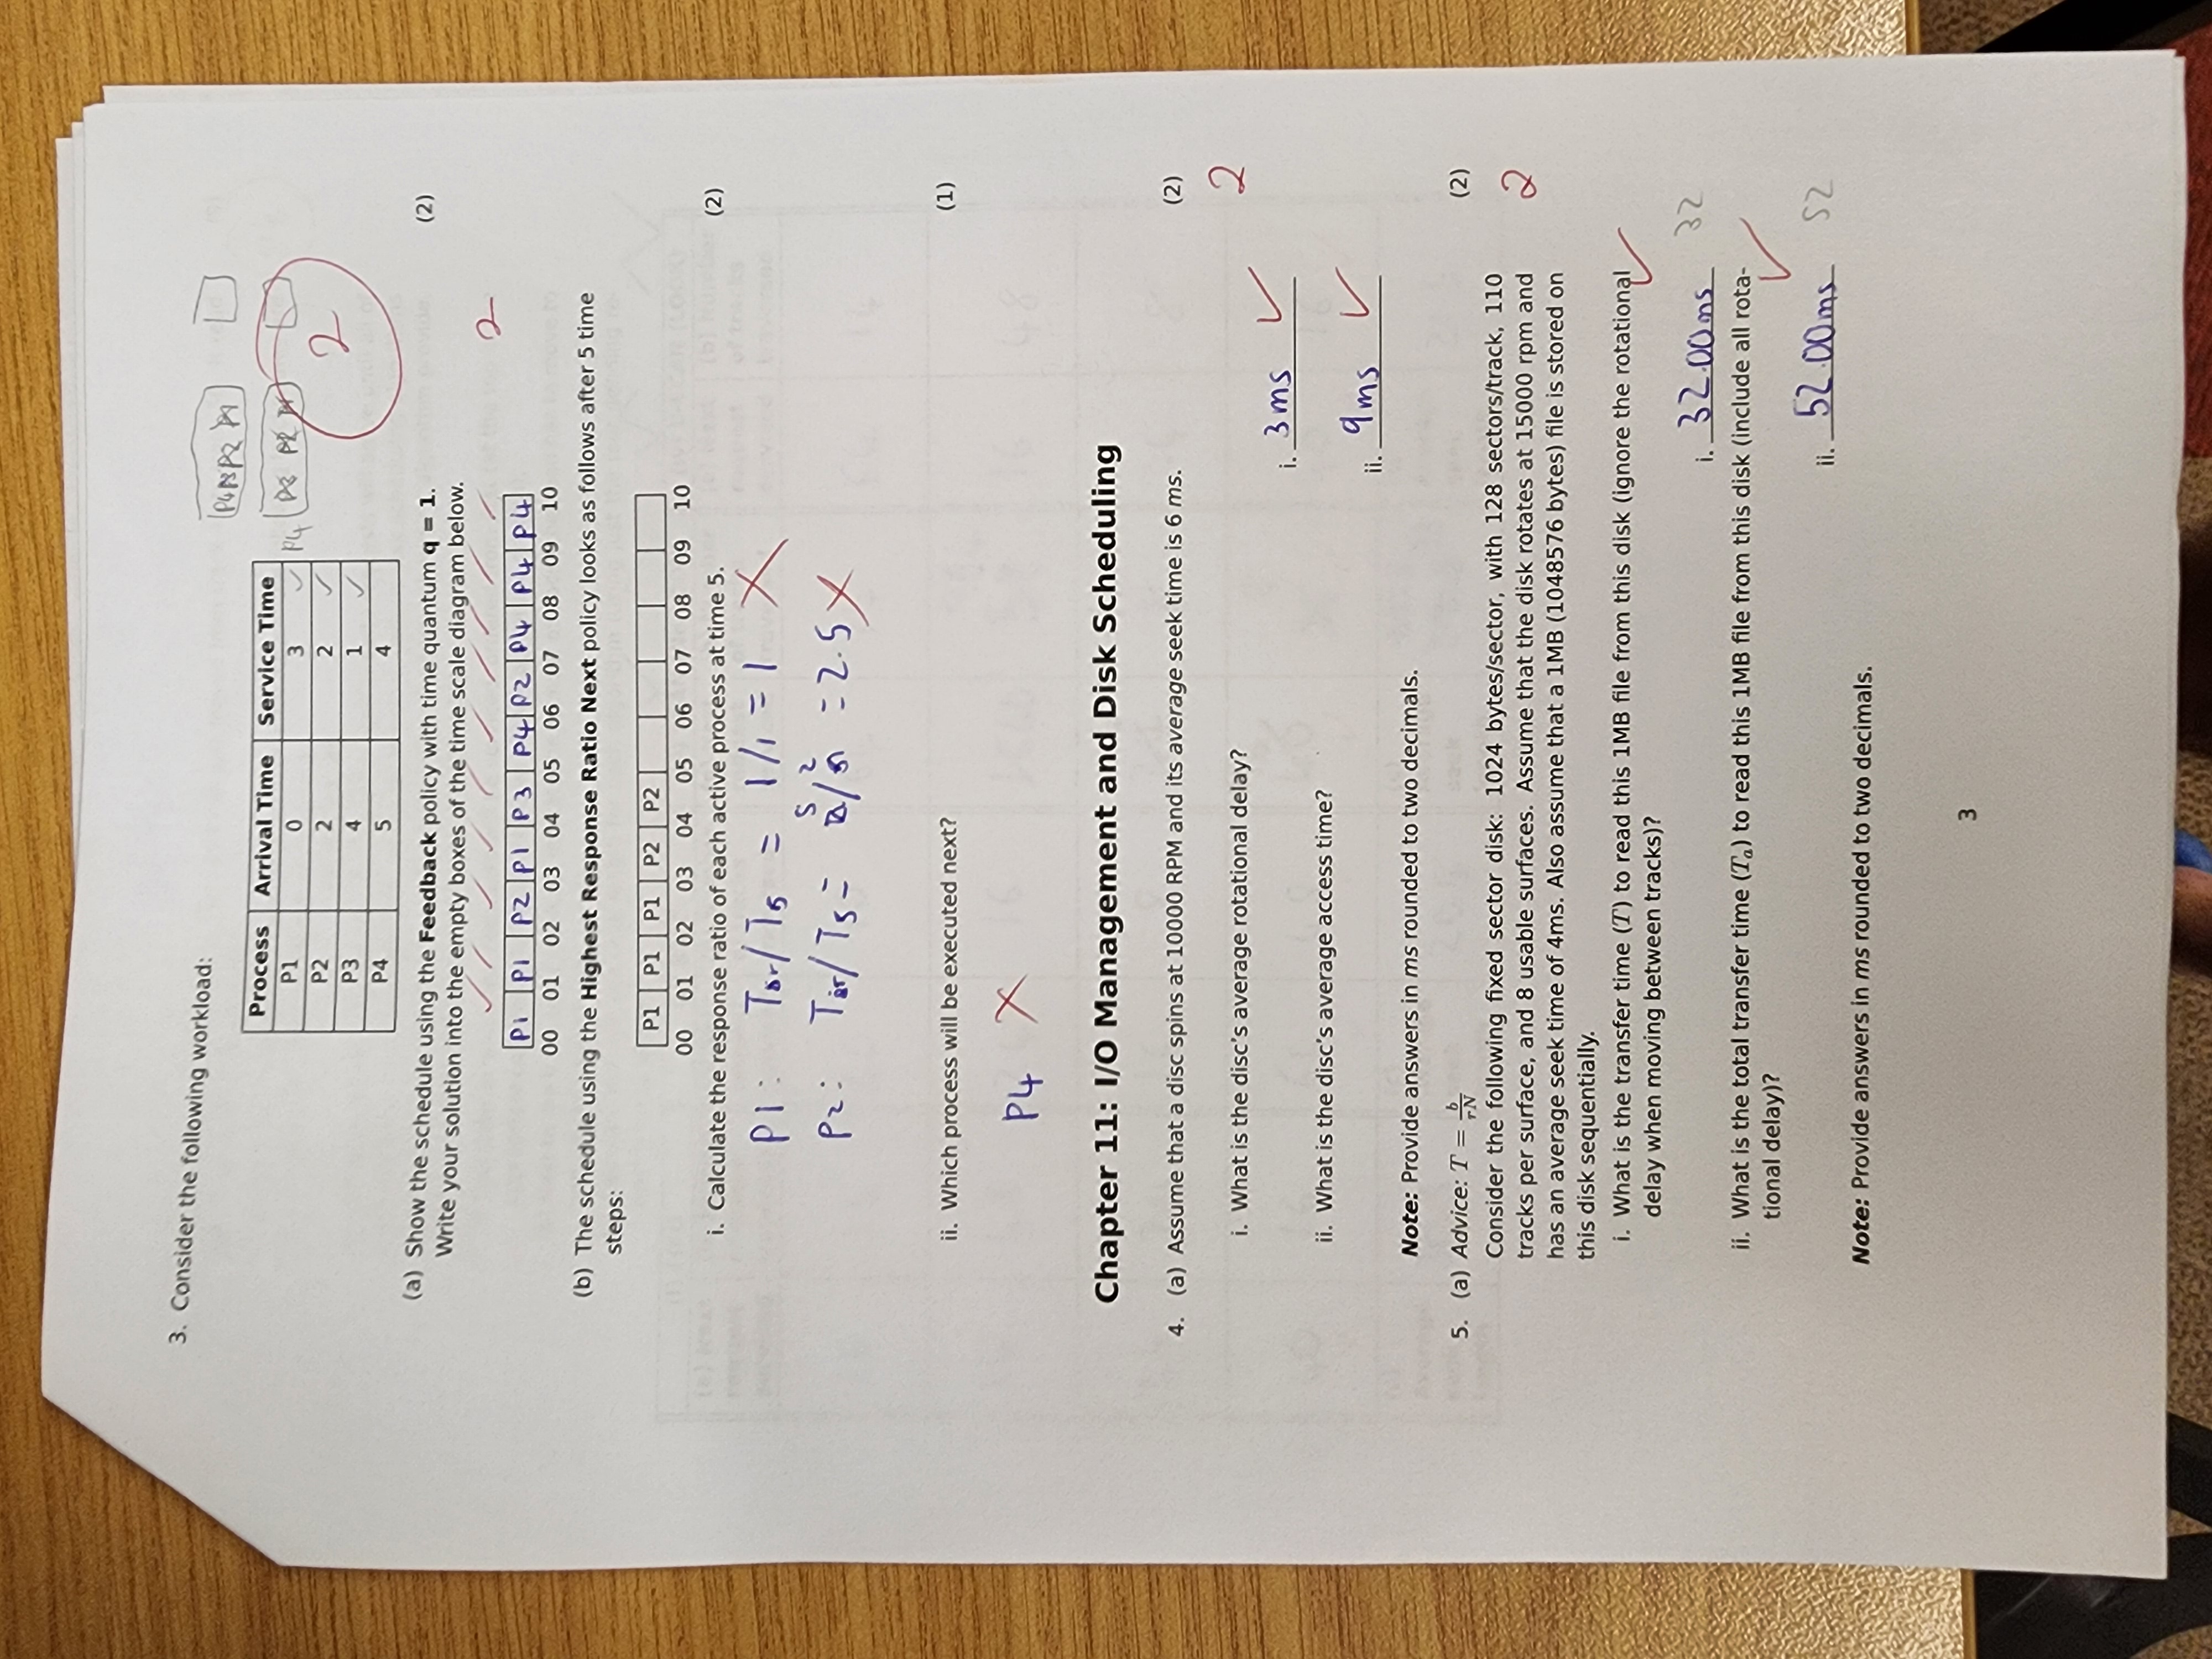 3. Consider the following workload:
P4 P3 P2 P1
Process Arrival Time Service Time
P1 0 3 ✓
P4 P3 P2 P1
P2 2 2 ✓
2
P3 4 1 ✓
P4 5 4
(a) Show the schedule using the Feedback policy with time quantum q = 1. (2)
Write your solution into the empty boxes of the time scale diagram below.
2
P1 P1 P2 P1 P3 P4 P2 P4 P4 P4
00 01 02 03 04 05 06 07 08 09 10
(b) The schedule using the Highest Response Ratio Next policy looks as follows after 5 time
steps:
P1 P1 P1 P2 P2
00 01 02 03 04 05 06 07 08 09 10
i. Calculate the response ratio of each active process at time 5. (2)
P1: / = 1/1 = 1 X
P2: / = 5/2 = 2.5 X
ii. Which process will be executed next? (1)
P4 X
Chapter 11: I/O Management and Disk Scheduling
4. (a) Assume that a disc spins at 10000 RPM and its average seek time is 6 ms. (2)
2
i. What is the disc's average rotational delay?
i. 3ms ✓
ii. What is the disc's average access time?
ii. 9ms ✓
Note: Provide answers in ms rounded to two decimals.
5. (a) Advice: T = b/rN (2)
Consider the following fixed sector disk: 1024 bytes/sector, with 128 sectors/track, 110
tracks per surface, and 8 usable surfaces. Assume that the disk rotates at 15000 rpm and 2
has an average seek time of 4ms. Also assume that a 1MB (1048576 bytes) file is stored on
this disk sequentially.
i. What is the transfer time (T) to read this 1MB file from this disk (ignore the rotational
delay when moving between tracks)? ✓
i. 32.00ms 32
ii. What is the total transfer time (Ta) to read this 1MB file from this disk (include all rota-
tional delay)? ✓
ii. 52.00ms 52
Note: Provide answers in ms rounded to two decimals.
3